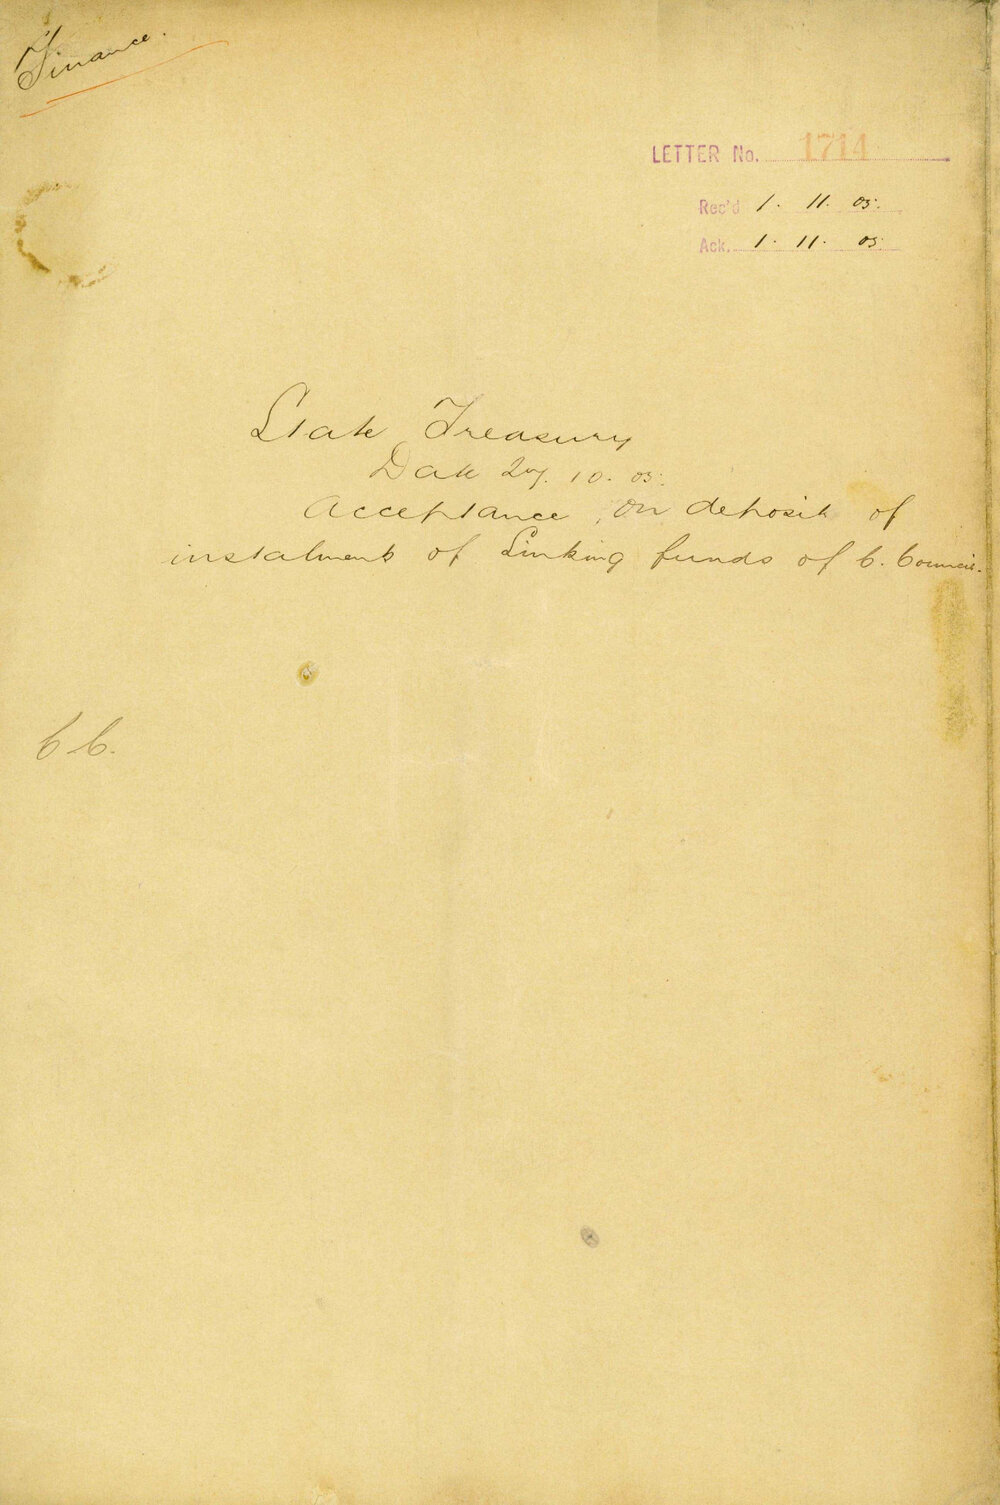 Finance.
LETTER No. 1714
Rec'd 1. 11. 05.
Ack. 1. 11. 05.
State Treasury
Date 27. 10. 05.
Acceptance, on deposit of
instalments of Sinking funds of C. Council.
C C.